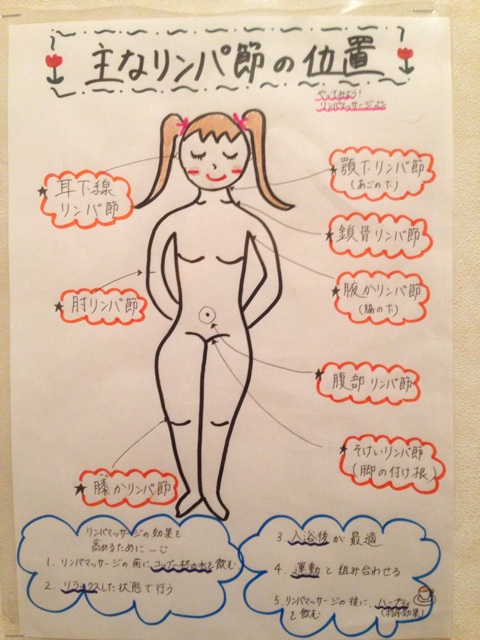 主なリンパ節の位置
やってみよう!
リンパマッサージ
★耳下線
リンパ節
★顎下リンパ節
(あごの下)
★鎖骨リンパ節
★肘リンパ節
★腋かリンパ節
(脇の下)
★腹部リンパ節
★そけいリンパ節
(脚の付け根)
★膝かリンパ節
リンパマッサージの効果を
高めるために…
1. リンパマッサージの前にコップ一杯の水を飲む
2. リラックスした状態で行う
3. 入浴後が最適
4. 運動と組み合わせる
5. リンパマッサージの後に、ハーブティ
を飲む (利尿効果)